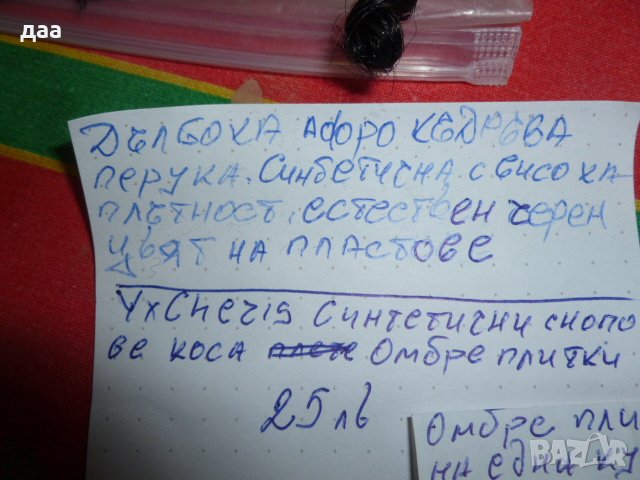 даа
Дълбока афро къдрава
перука. Синтетична с висока
плътност, естествен черен
цвят на пластове
YxCheris Синтетични снопо
ве коса плете Омбре плитки
25 лв
Омбре пли
на едни ку
BAZAR